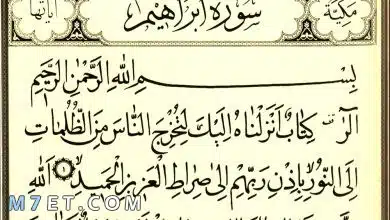 مكية
سورة ابراهيم
آياتها
بِسْمِ اللهِ الرَّحْمٰنِ الرَّحِيمِ
الٓرٰ كِتَابٌ اَنْزَلْنَاهُ اِلَيْكَ لِتُخْرِجَ النَّاسَ مِنَ الظُّلُمَاتِ
اِلَى النُّورِ بِاِذْنِ رَبِّهِمْ اِلٰى صِرَاطِ الْعَزِيزِ الْحَمِيدِ ١ اَللهِ
M7ET.COM